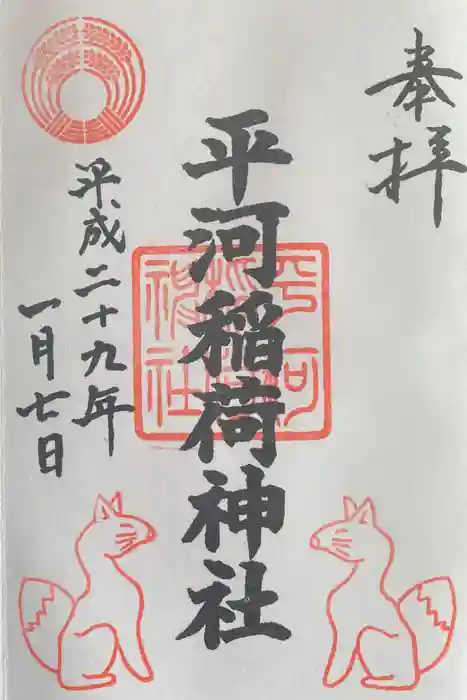 奉拝
平河稲荷神社
平成二十九年
一月七日